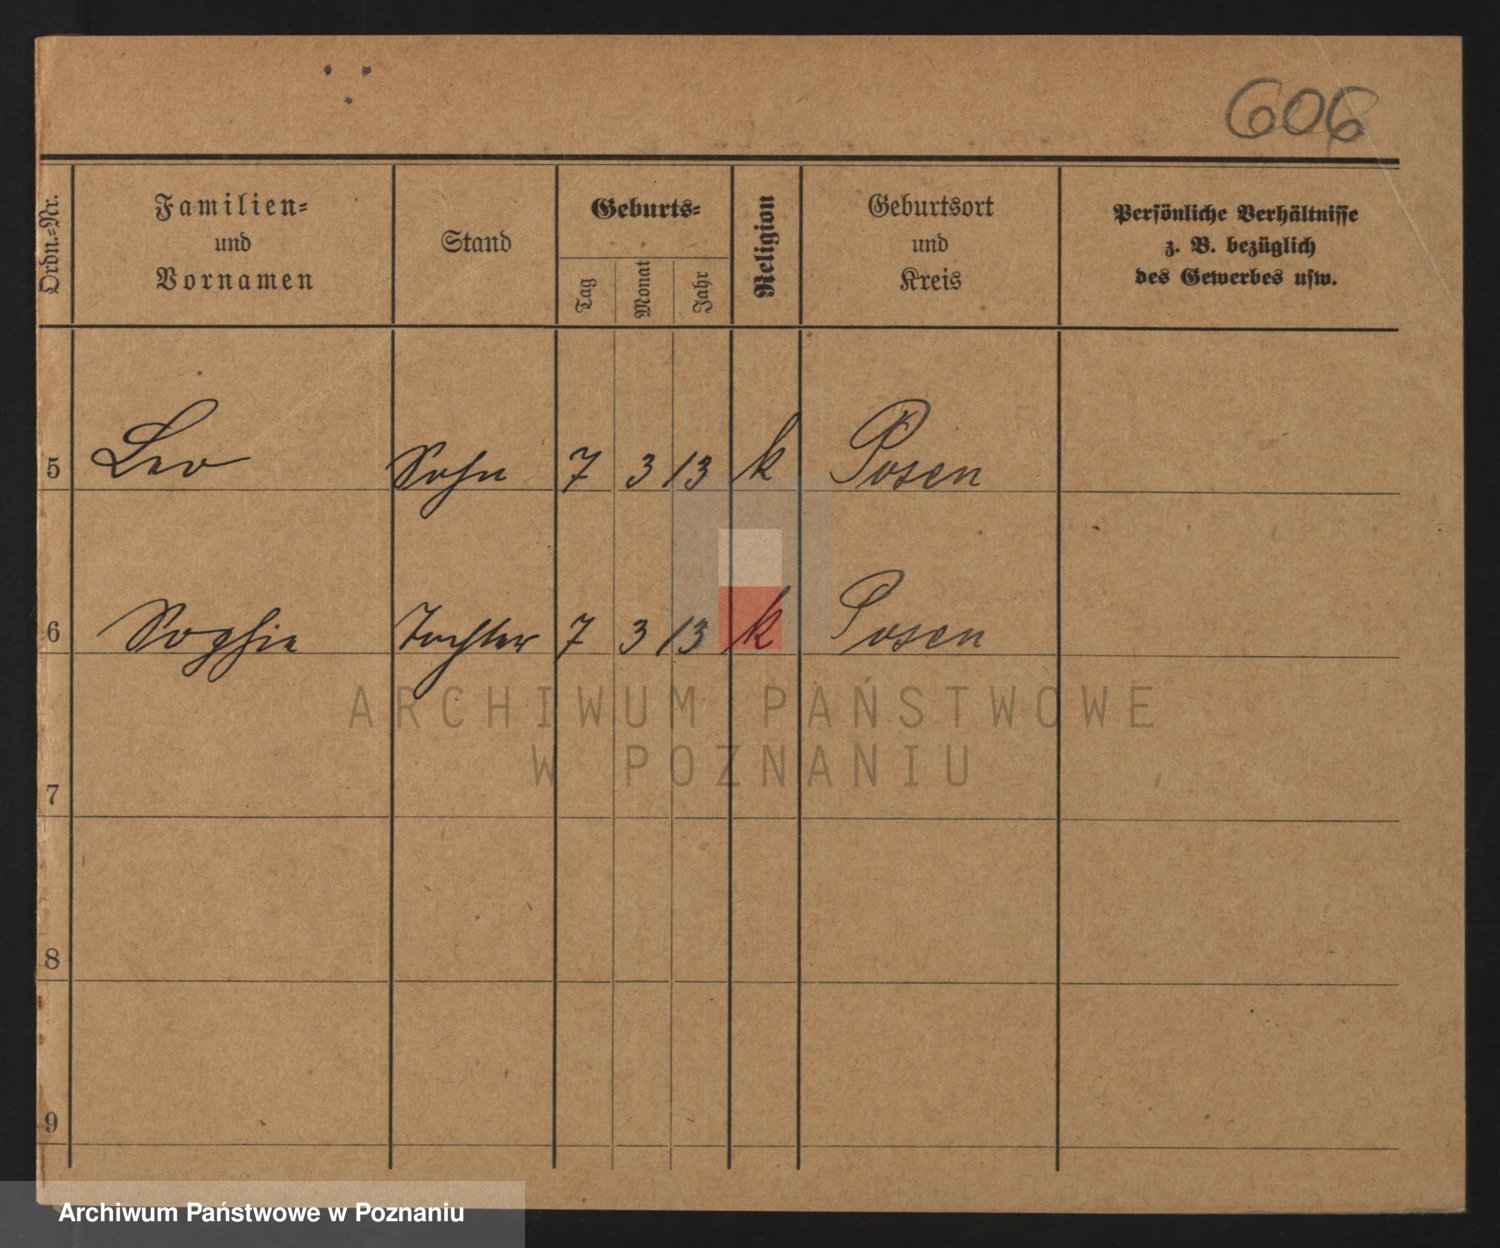 606
Ordn.-Nr.
Familien-
und
Vornamen
Stand
Geburts-
Tag
Monat
Jahr
Religion
Geburtsort
und
Kreis
Persönliche Verhältnisse
z. B. bezüglich
des Gewerbes usw.
5 Leo Sohn 7 3 13 k Posen
6 Sophie Tochter 7 3 13 k Posen
ARCHIWUM PAŃSTWOWE
W POZNANIU
7
8
9
Archiwum Państwowe w Poznaniu